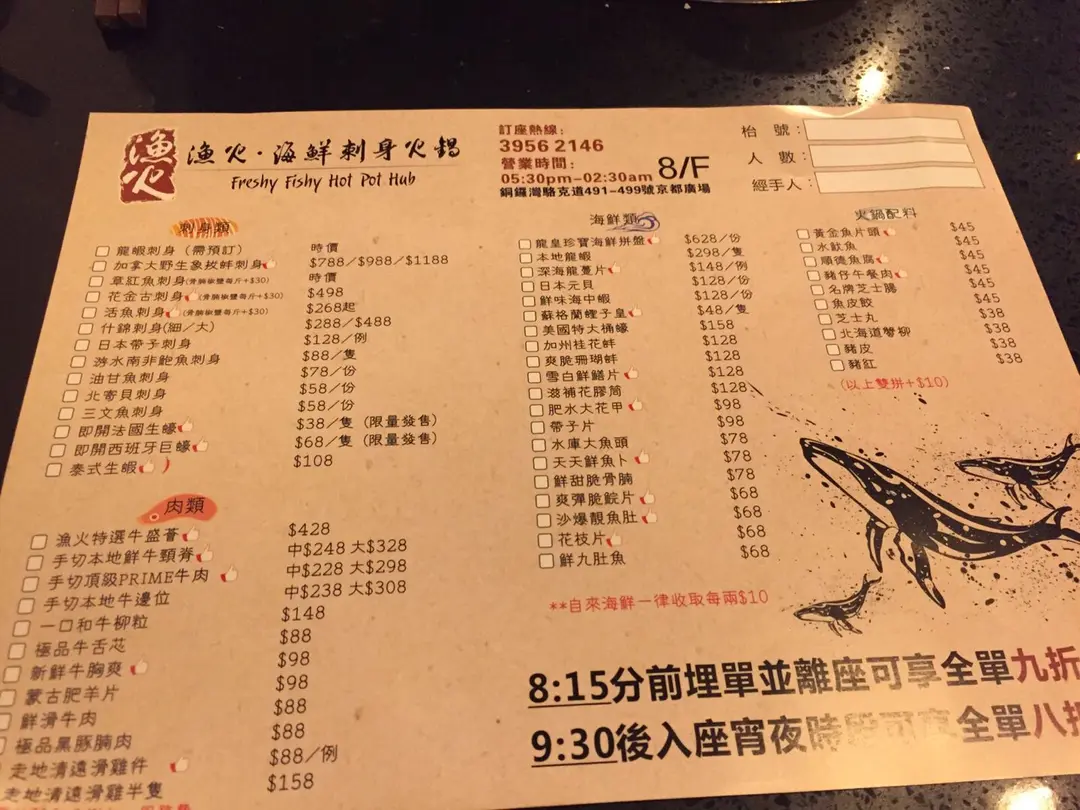 漁火
漁火·海鮮刺身火鍋
Freshy Fishy Hot Pot Hub
訂座熱線:
3956 2146
營業時間:
05:30pm-02:30am 8/F
銅鑼灣駱克道491-499號京都廣場
枱 號:
人 數:
經手人:
刺身類
龍蝦刺身 (需預訂) 時價
加拿大野生象拔蚌刺身 $788/$988/$1188
草紅魚刺身(骨腩椒鹽每斤+$30) 時價
花金古刺身(骨腩椒鹽每斤+$30) $498
活魚刺身(骨腩椒鹽每斤+$30) $268起
什錦刺身(細/大) $288/$488
日本帶子刺身 $128/例
游水南非鮑魚刺身 $88/隻
油甘魚刺身 $78/份
北寄貝刺身 $58/份
三文魚刺身 $58/份
即開法國生蠔 $38/隻 (限量發售)
即開西班牙巨蠔 $68/隻 (限量發售)
泰式生蝦 ) $108
肉類
漁火特選牛盛薈 $428
手切本地鮮牛頸脊 中$248 大$328
手切頂級PRIME牛肉 中$228 大$298
手切本地牛邊位 中$238 大$308
一口和牛柳粒 $148
極品牛舌芯 $88
新鮮牛胸爽 $98
蒙古肥羊片 $98
鮮滑牛肉 $88
極品黑豚腩肉 $88
走地清遠滑雞件 $88/例
走地清遠滑雞半隻 $158
海鮮類
龍皇珍寶海鮮拼盤 $628/份
本地龍蝦 $298/隻
深海龍躉片 $148/例
日本元貝 $128/份
鮮味海中蝦 $128/份
蘇格蘭蟶子皇 $48/隻
美國特大桶蠔 $158
加州桂花蚌 $128
爽脆珊瑚蚌 $128
雪白鮮鱔片 $128
滋補花膠筒 $128
肥水大花甲 $98
帶子片 $98
水庫大魚頭 $78
天天鮮魚卜 $78
鮮甜脆骨腩 $78
爽彈脆鯇片 $68
沙爆靚魚肚 $68
花枝片 $68
鮮九肚魚 $68
**自來海鮮一律收取每兩$10
火鍋配料
黃金魚片頭 $45
水魷魚 $45
順德魚腐 $45
豬仔午餐肉 $45
名牌芝士腸 $45
魚皮餃 $45
芝士丸 $38
北海道蟹柳 $38
豬皮 $38
豬紅 $38
(以上雙拼+$10)
8:15分前埋單並離座可享全單九折
9:30後入座宵夜時段可享全單八折